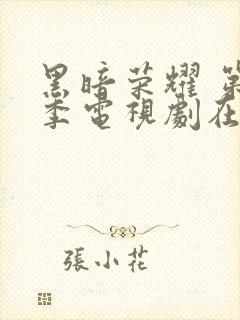 黑暗荣耀 第
季電視劇在
張小花